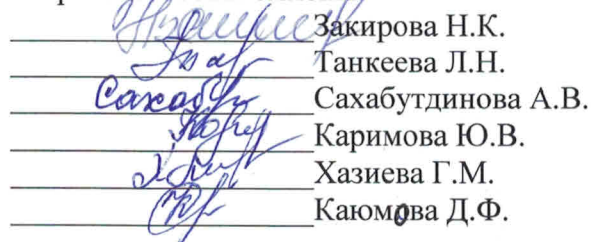 Закирова Н.К.
Танкеева Л.Н.
Сахабутдинова А.В.
Каримова Ю.В.
Хазиева Г.М.
Каюмова Д.Ф.